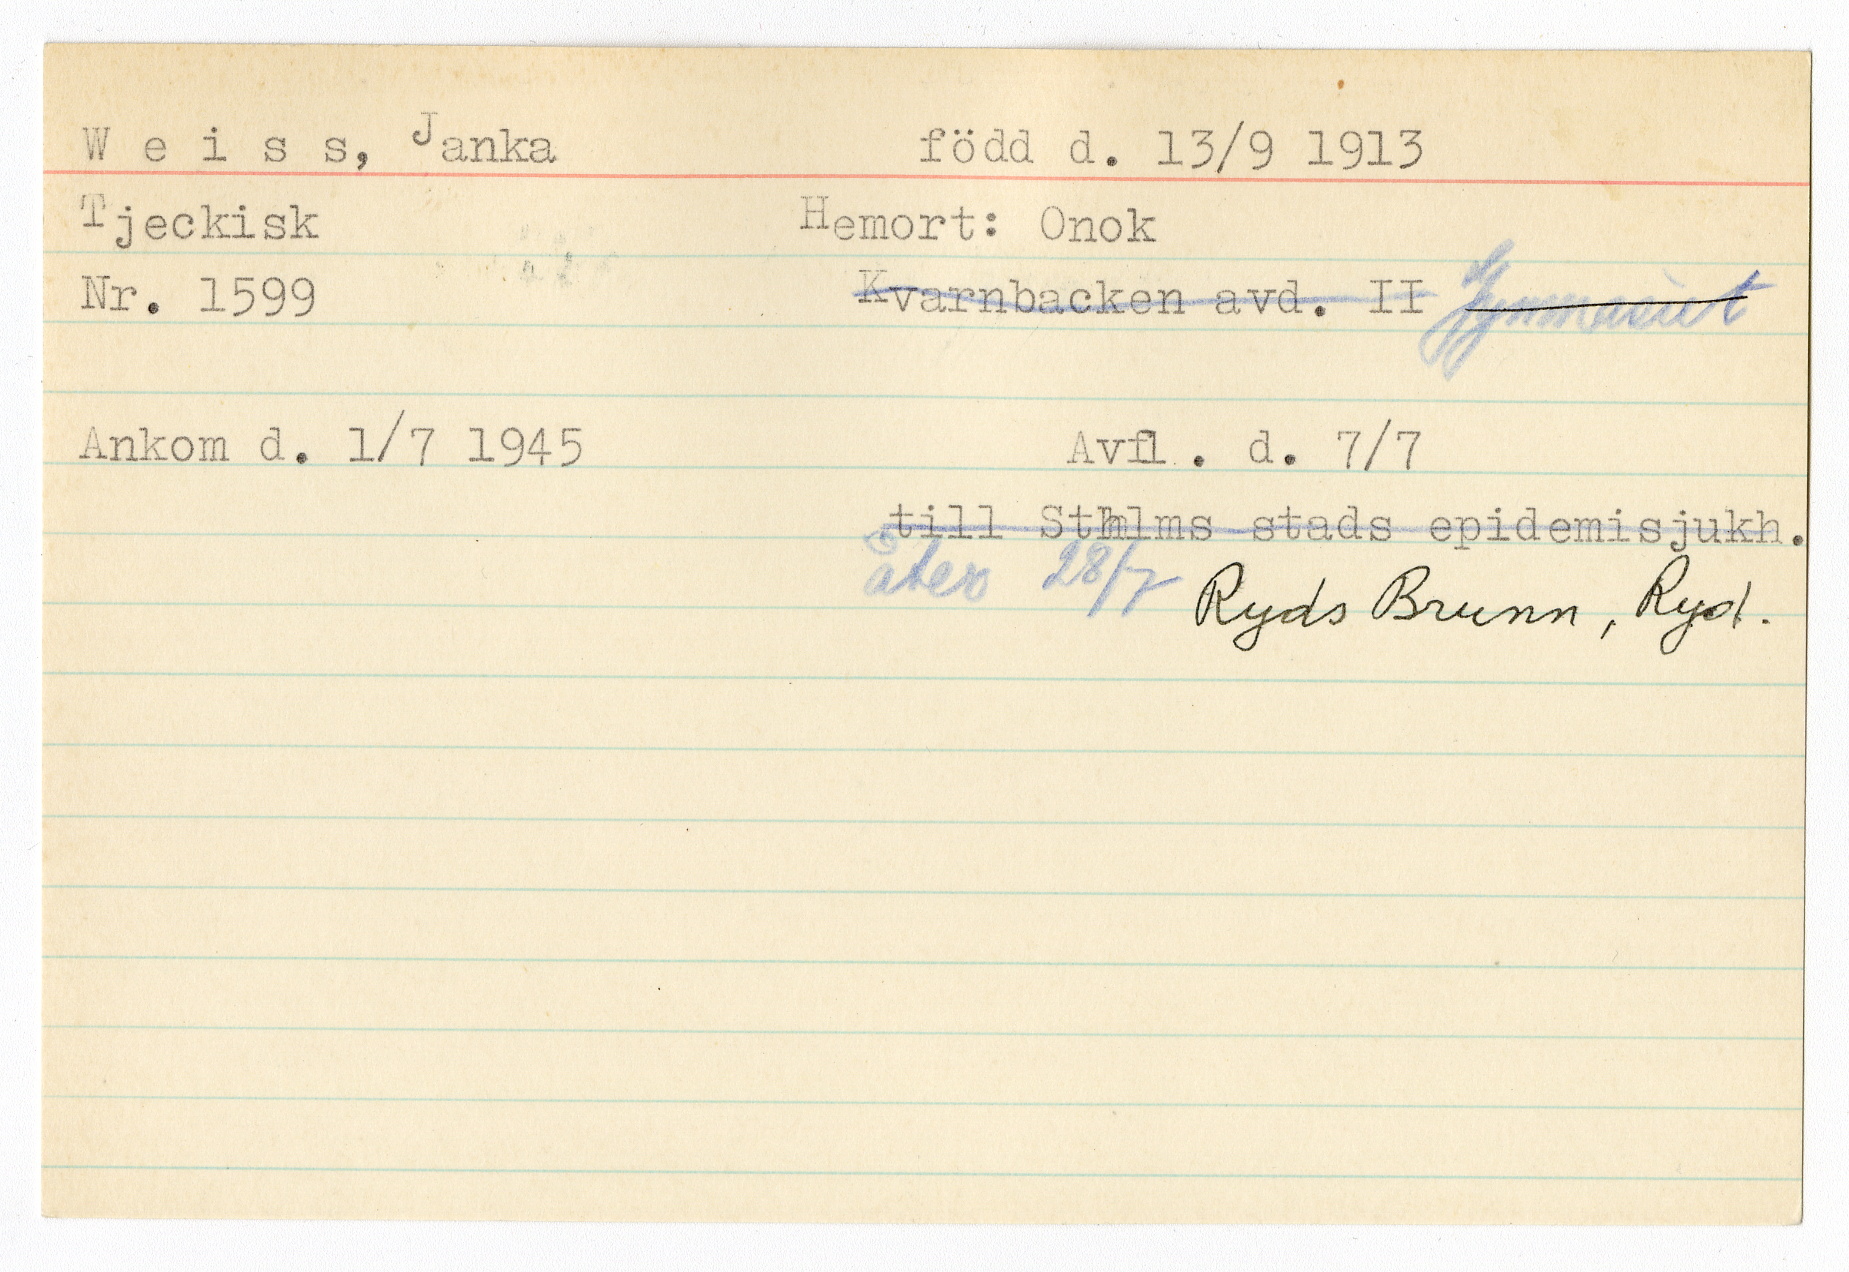 W e i s s, Janka född d. 13/9 1913
Tjeckisk Hemort: Onok
Nr. 1599 Kvarnbacken avd. II Gymnasiet
Ankom d. 1/7 1945 Avfl. d. 7/7
till Sthlms stads epidemisjukh.
åter 28/7 Ryds Brunn, Ryd.